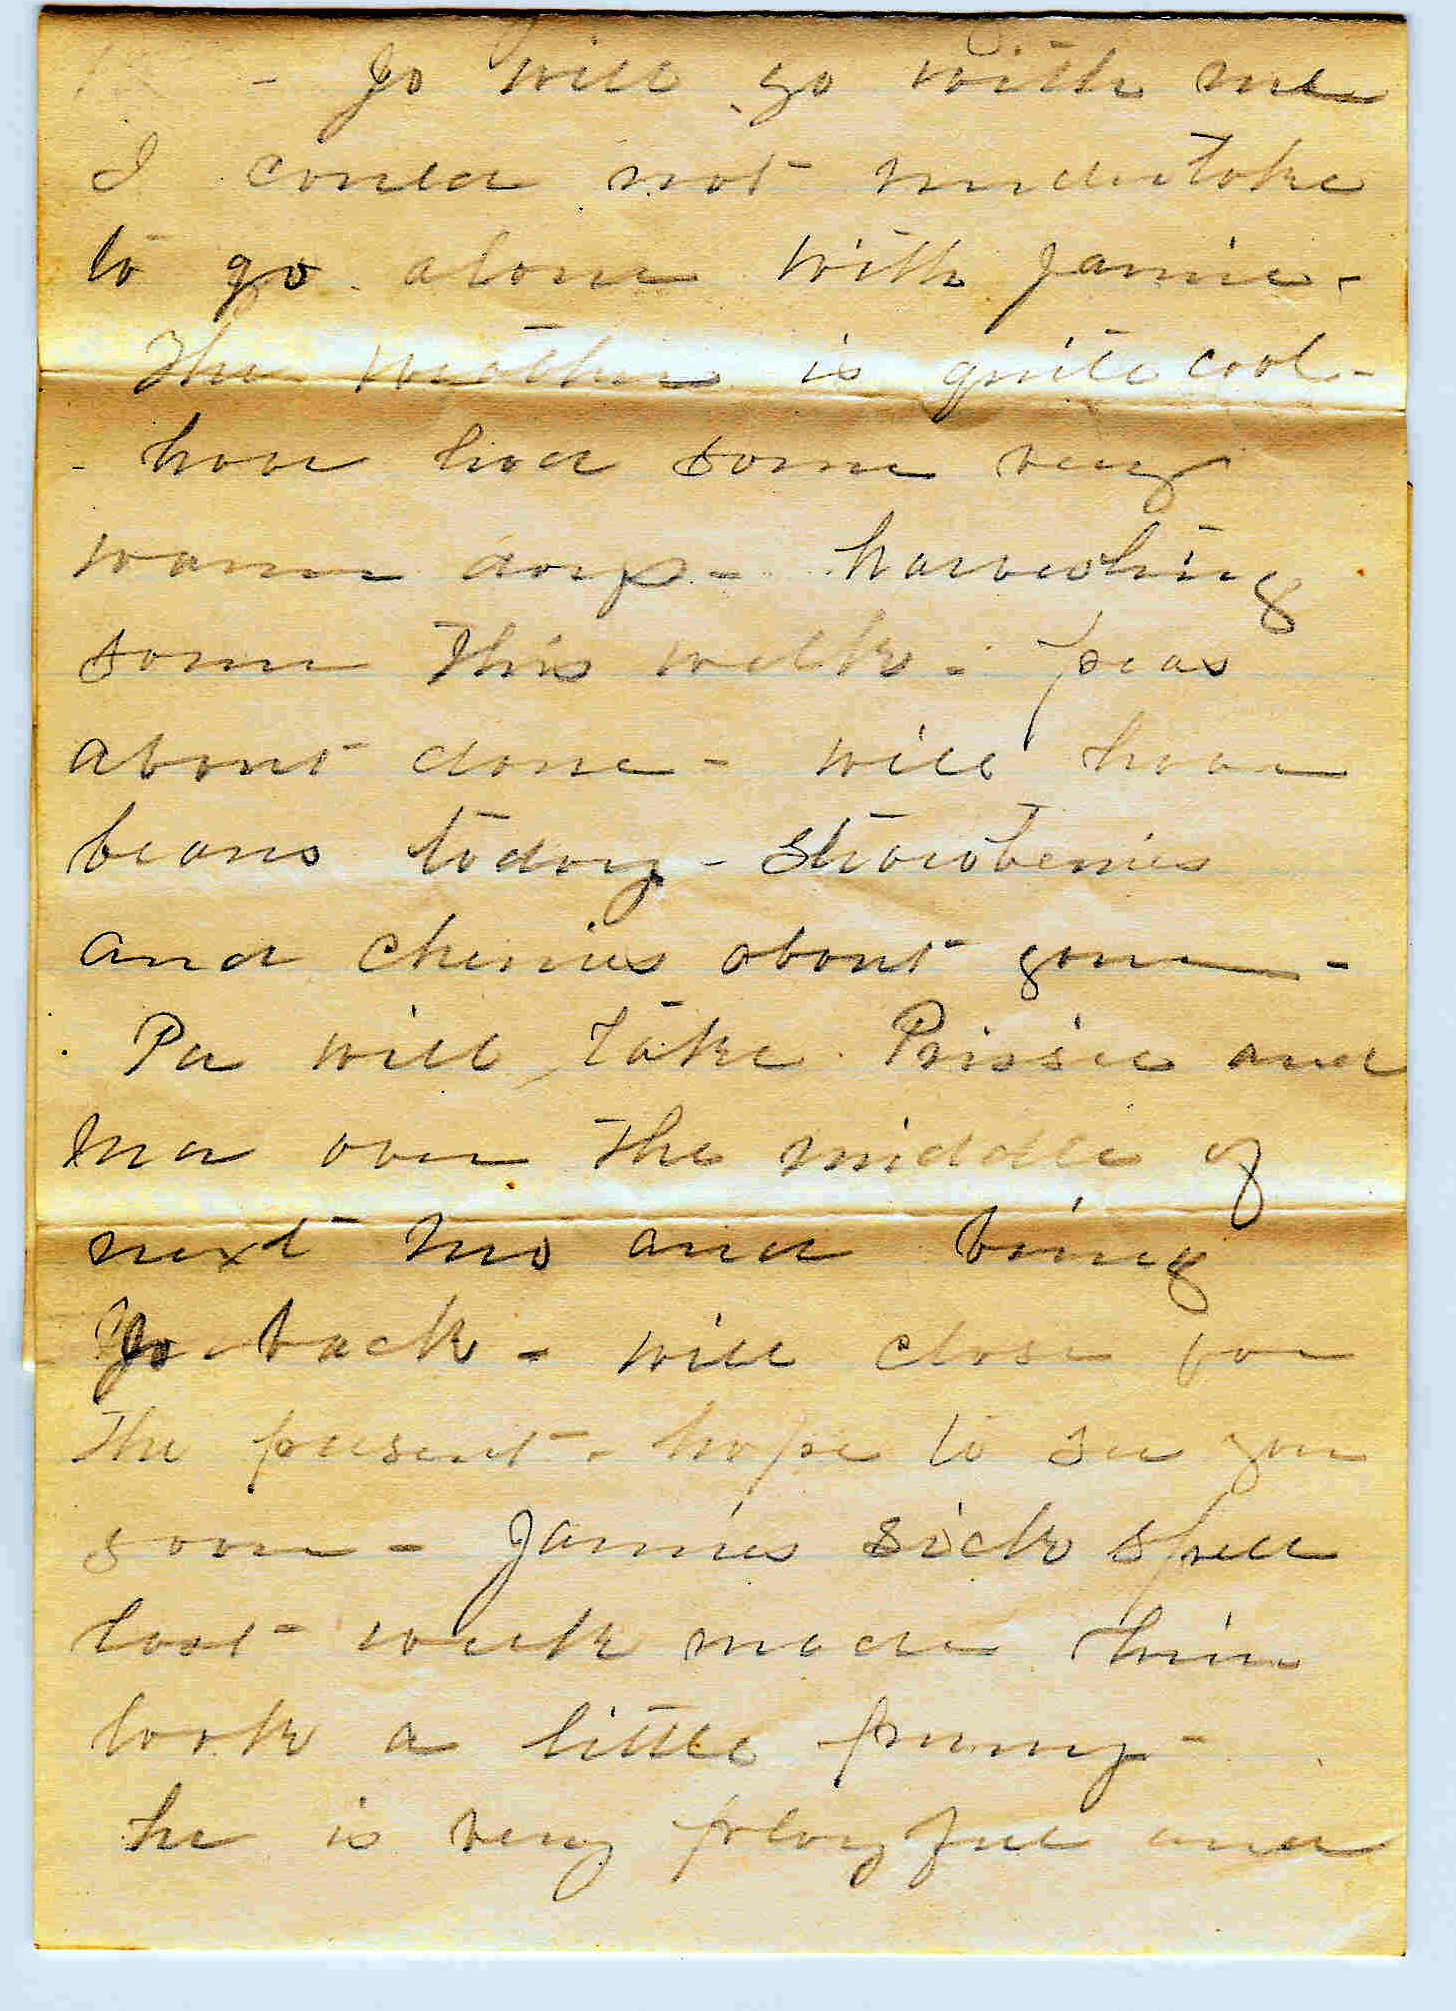 - Jo will go with me
I could not undertake
to go alone with Jamie -
The weather is quite cool -
- have had some very
warm days - harvesting
some this week - peas
about done - will have
beans today - Strawberries
and cherries about gone -
Pa will take Prissie and
Ma over the middle of
next mo and bring
Jo back - will close for
the present - hope to see you
soon - Jamies sick spell
last week made him
look a little
he is very playful and